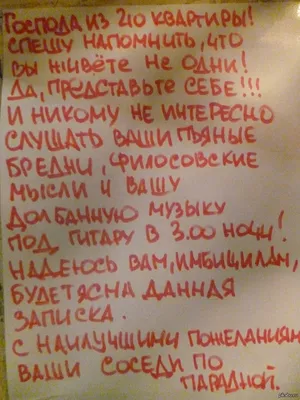 Господа из 210 квартиры!
спешу напомнить, что
вы живёте не одни!
Да, представьте себе!!!
и никому не интересно
слушать ваши пьяные
бредни, филосовские
мысли и вашу
долбанную музыку
под гитару в 3.00 ночи!
надеюсь вам, имбицилам,
будет ясна данная
записка.
с наилучшими пожеланиям
ваши соседи по
парадной.